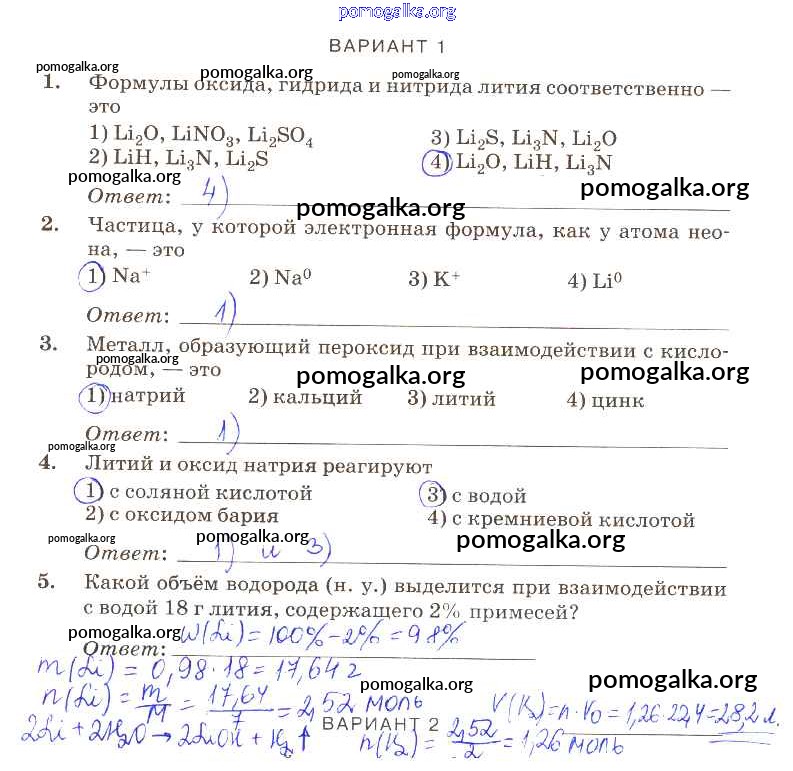 pomogalka.org
ВАРИАНТ 1
pomogalka.org pomogalka.org pomogalka.org
1. Формулы оксида, гидрида и нитрида лития соответственно —
это
1) Li₂O, LiNO₃, Li₂SO₄ 3) Li₂S, Li₃N, Li₂O
2) LiH, Li₃N, Li₂S 4) Li₂O, LiH, Li₃N
pomogalka.org pomogalka.org
Ответ: 4)
pomogalka.org
2. Частица, у которой электронная формула, как у атома нео-
на, — это
1) Na⁺ 2) Na⁰ 3) K⁺ 4) Li⁰
Ответ: 1)
3. Металл, образующий пероксид при взаимодействии с кисло-
pomogalka.org
родом, — это
pomogalka.org pomogalka.org
1) натрий 2) кальций 3) литий 4) цинк
Ответ: 1)
pomogalka.org
4. Литий и оксид натрия реагируют
1) с соляной кислотой 3) с водой
2) с оксидом бария 4) с кремниевой кислотой
pomogalka.org pomogalka.org pomogalka.org
Ответ: 1) и 3)
5. Какой объём водорода (н. у.) выделится при взаимодействии
с водой 18 г лития, содержащего 2% примесей?
pomogalka.org
Ответ: W(Li) = 100% - 2% = 98%
m(Li) = 0,98 · 18 = 17,64 г
pomogalka.org pomogalka.org
n(Li) = m/M = 17,64/7 = 2,52 моль V(H₂) = n · V₀ = 1,26 · 22,4 = 28,2 л.
ВАРИАНТ 2
2Li + 2H₂O → 2LiOH + H₂↑ n(H₂) = 2,52/2 = 1,26 моль
pomogalka.org